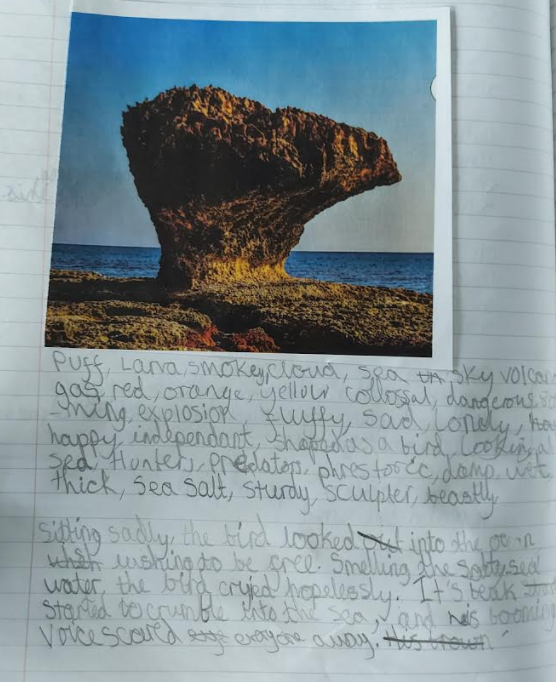 Puff, Lava, smokey, cloud, sea sky volcano
gas, red, orange, yellow collosal, dangerous
-ming, explosion fluffy, sad, lonely,
happy, independant, shaped as a bird, looking at
sea, Hunter, predator, phrestoric, damp, wet
thick, sea salt, sturdy, sculpter, beastly
Sitting sadly, the bird looked out into the
wishing to be free. Smelling the salty sea
water, the bird cryed hopelessly. It's beak
started to crumble into the sea, and his booming
voice scared everyone away. His crown